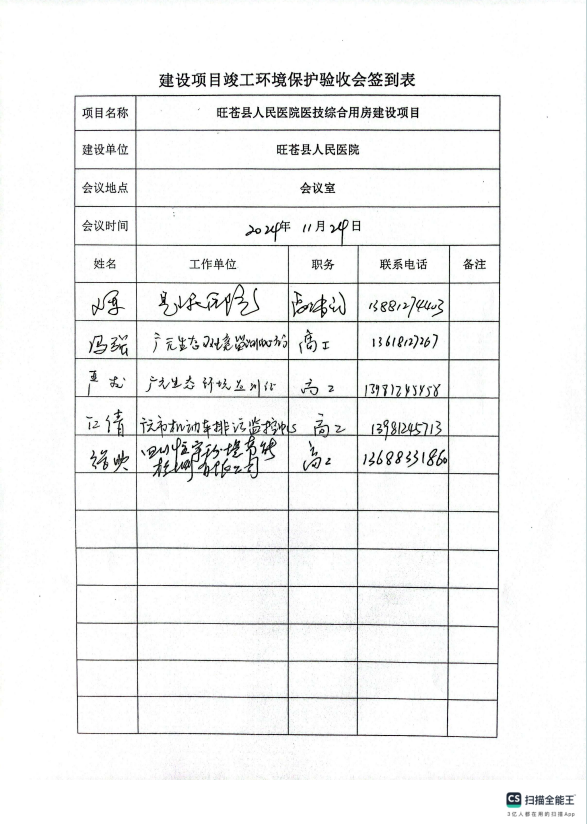 建设项目竣工环境保护验收会签到表
项目名称 旺苍县人民医院医技综合用房建设项目
建设单位 旺苍县人民医院
会议地点 会议室
会议时间 2024年 11月29日
姓名 工作单位 职务 联系电话 备注
13881274403
冯强 广元生态环境监测中心站 高工 13618127267
广元生态环境监测站 高工 13981245458
江倩 元市机动车排污监控中心 高工 13981245713
高工 13688331860
有限公司
CS 扫描全能王
3亿人都在用的扫描App